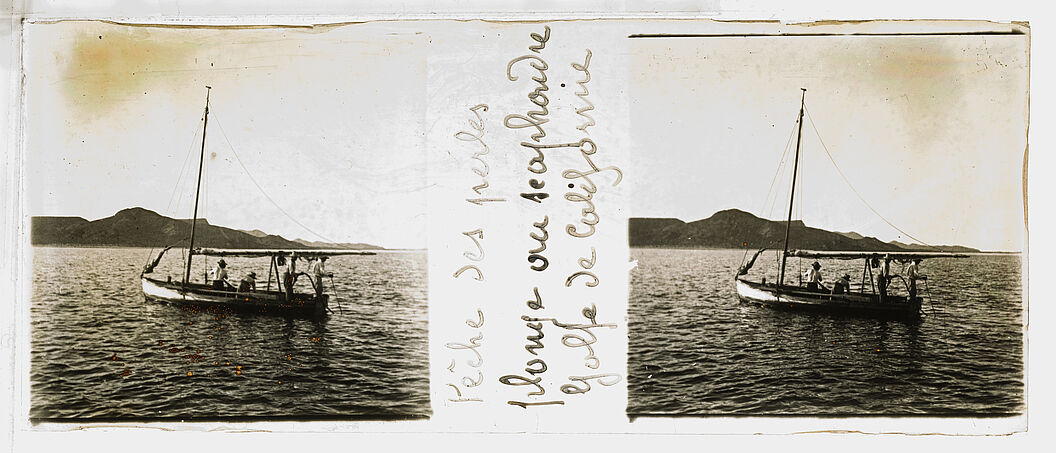 Pêche des perles
plonge au scaphandre
Golfe de Californie